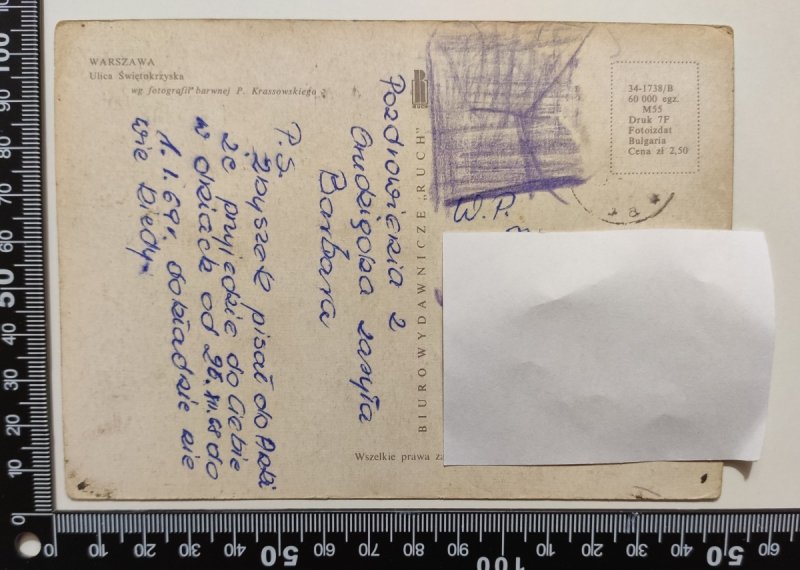 WARSZAWA
Ulica Świętokrzyska
wg fotografii barwnej P. Krassowskiego
Pozdrowienia z
Grudziądza zasyła
Barbara
P.S.
Zbyszek pisał do Arki
że przyjedzie do Ciebie
w dniach od 28.XII.68 do
1.I.69r. dokładnie nie
wie kiedy.
BIURO WYDAWNICZE „RUCH"
Wszelkie prawa
34-1738/B
60 000 egz.
M55
Druk 7F
Fotoizdat
Bulgaria
Cena zł 2,50
W.P.
100
90
80
70
60
50
40
30
20
10
0
0
10
20
30
40
50
60
70
80
90
100
10
20
30
40
50